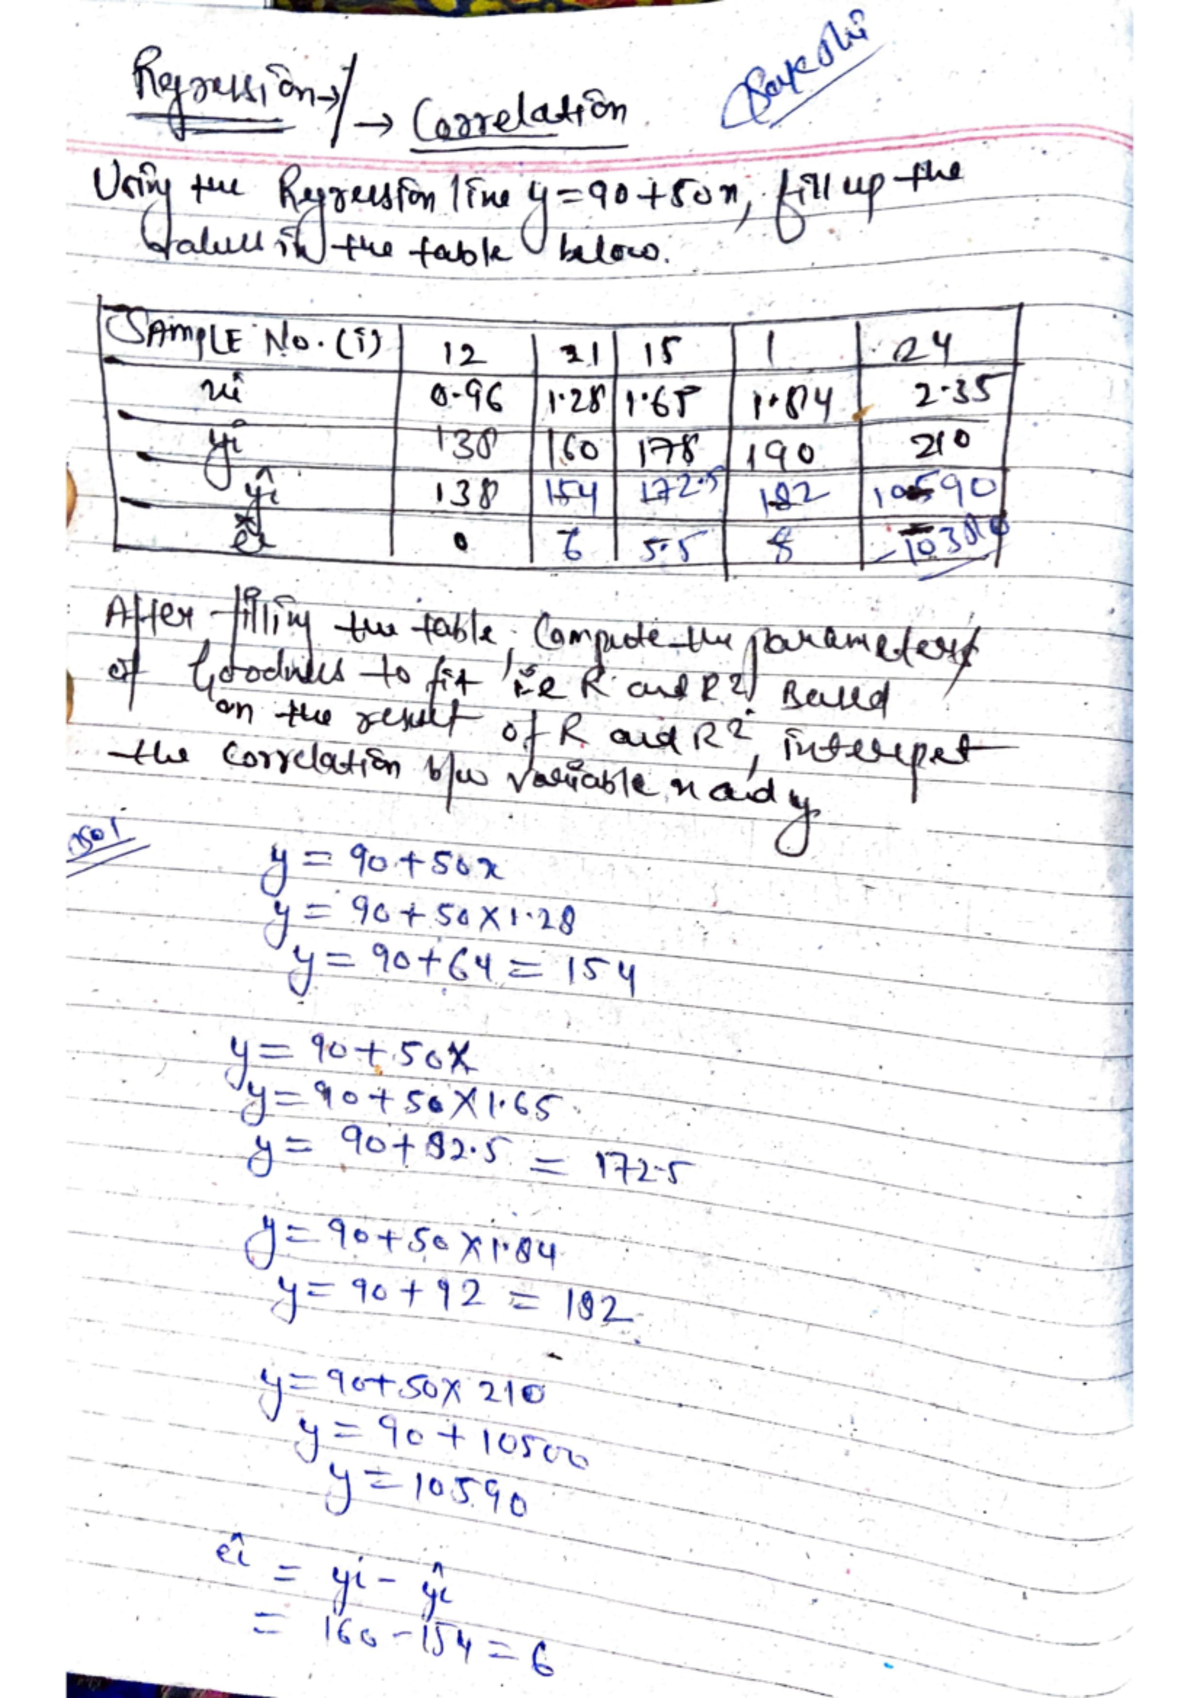 Regression →/→ Correlation
Sakshi
Using the Regression line y = 90 + 50x, fill up the
values in the table below.
SAMPLE No. (i) 12 21 15 1 24
xi 0.96 1.28 1.65 1.84 2.35
yi 138 160 178 190 210
ŷi 138 154 172.5 182 10590
êi 0 6 5.5 8 -10380
After filling the table, Compute the parameters
of Goodness to fit ie R and R². Based
on the result of R and R², interepet
the correlation b/w variable x and y
Sol
y = 90 + 50x
y = 90 + 50 × 1.28
y = 90 + 64 = 154
y = 90 + 50x
y = 90 + 50 × 1.65
y = 90 + 82.5 = 172.5
y = 90 + 50 × 1.84
y = 90 + 92 = 182
y = 90 + 50 × 210
y = 90 + 10500
y = 10590
êi = yi - ŷi
= 160 - 154 = 6